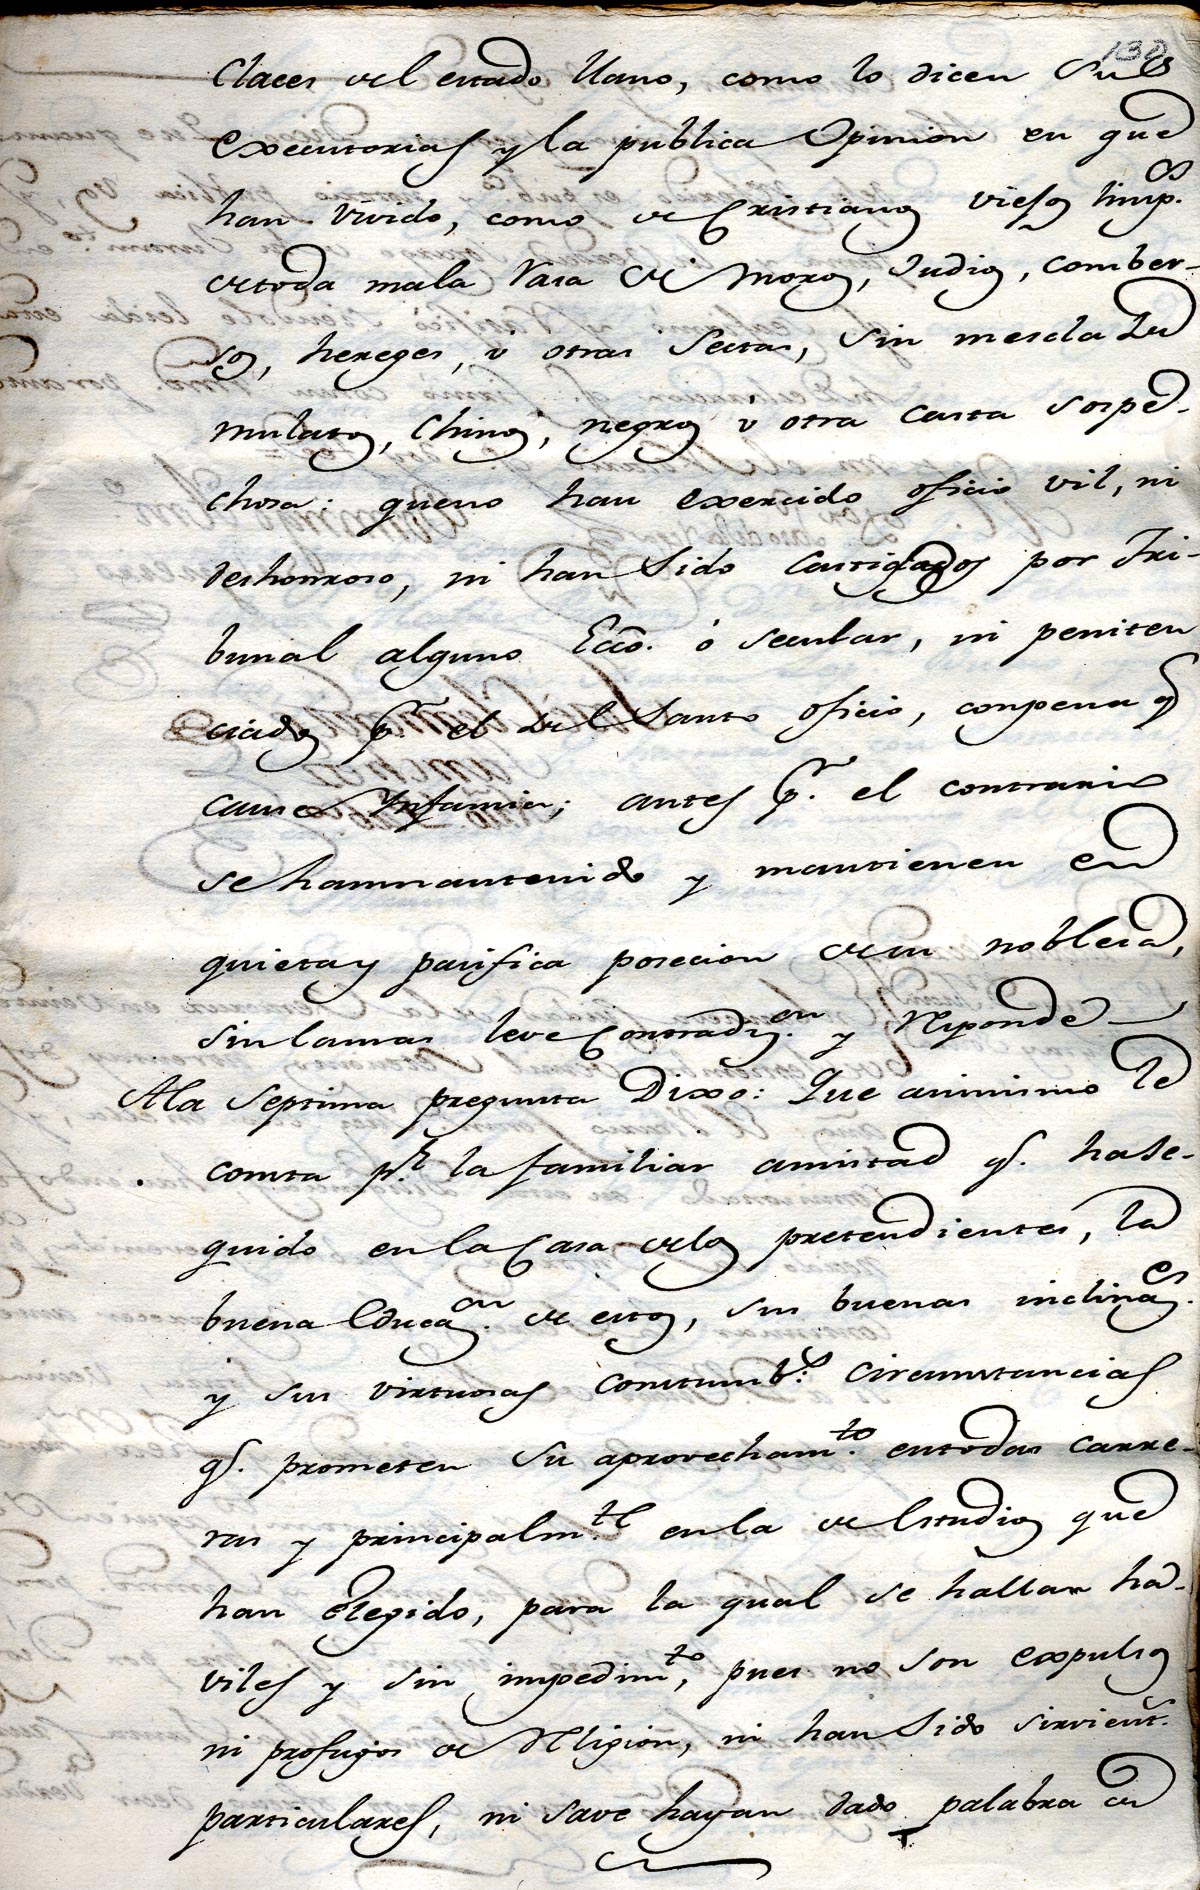 138
Claces del estado llano, como lo dicen sus
Executorias y la publica Opinion en que
han vivido, como de Cristianos viejos limp.os
de toda mala rasa de Moros, Judios, comber-
sos, hereges, ú otras sectas, sin mescla de
mulatos, chinos, negros ú otra casta sospe-
chosa: que no han exercido oficio vil, ni
deshonroso, ni han sido castigados por Tri-
bunal alguno Ecco. ó secular, ni peniten
ciados pr. el del Santo oficio, con pena q
cause Ynfamia; antes pr. el contrario
se han mantenido y mantienen en
quieta y pasifica posecion de su noblesa,
sin la mas leve Contradi.on y Responde
A la septima pregunta Dixo: Que asimismo le
consta pr. la familiar amistad q. ha se-
guido en la Casa de los pretendientes, la
buena Educa.on de estos, sus buenas inclina.es
y sus virtuosas constumb.s circunstancias
q. prometen su aprovecham.to en todas carre-
ras y principalm.te en la de Estudios que
han elegido, para la qual se hallan ha-
viles y sin impedim.to, pues no son expulsos
ni profugos de Religion, ni han sido sirvient.s
particulares, ni save hayan dado palabra de